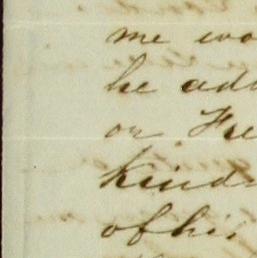 me wo
he ad
or Fre
kind
of his